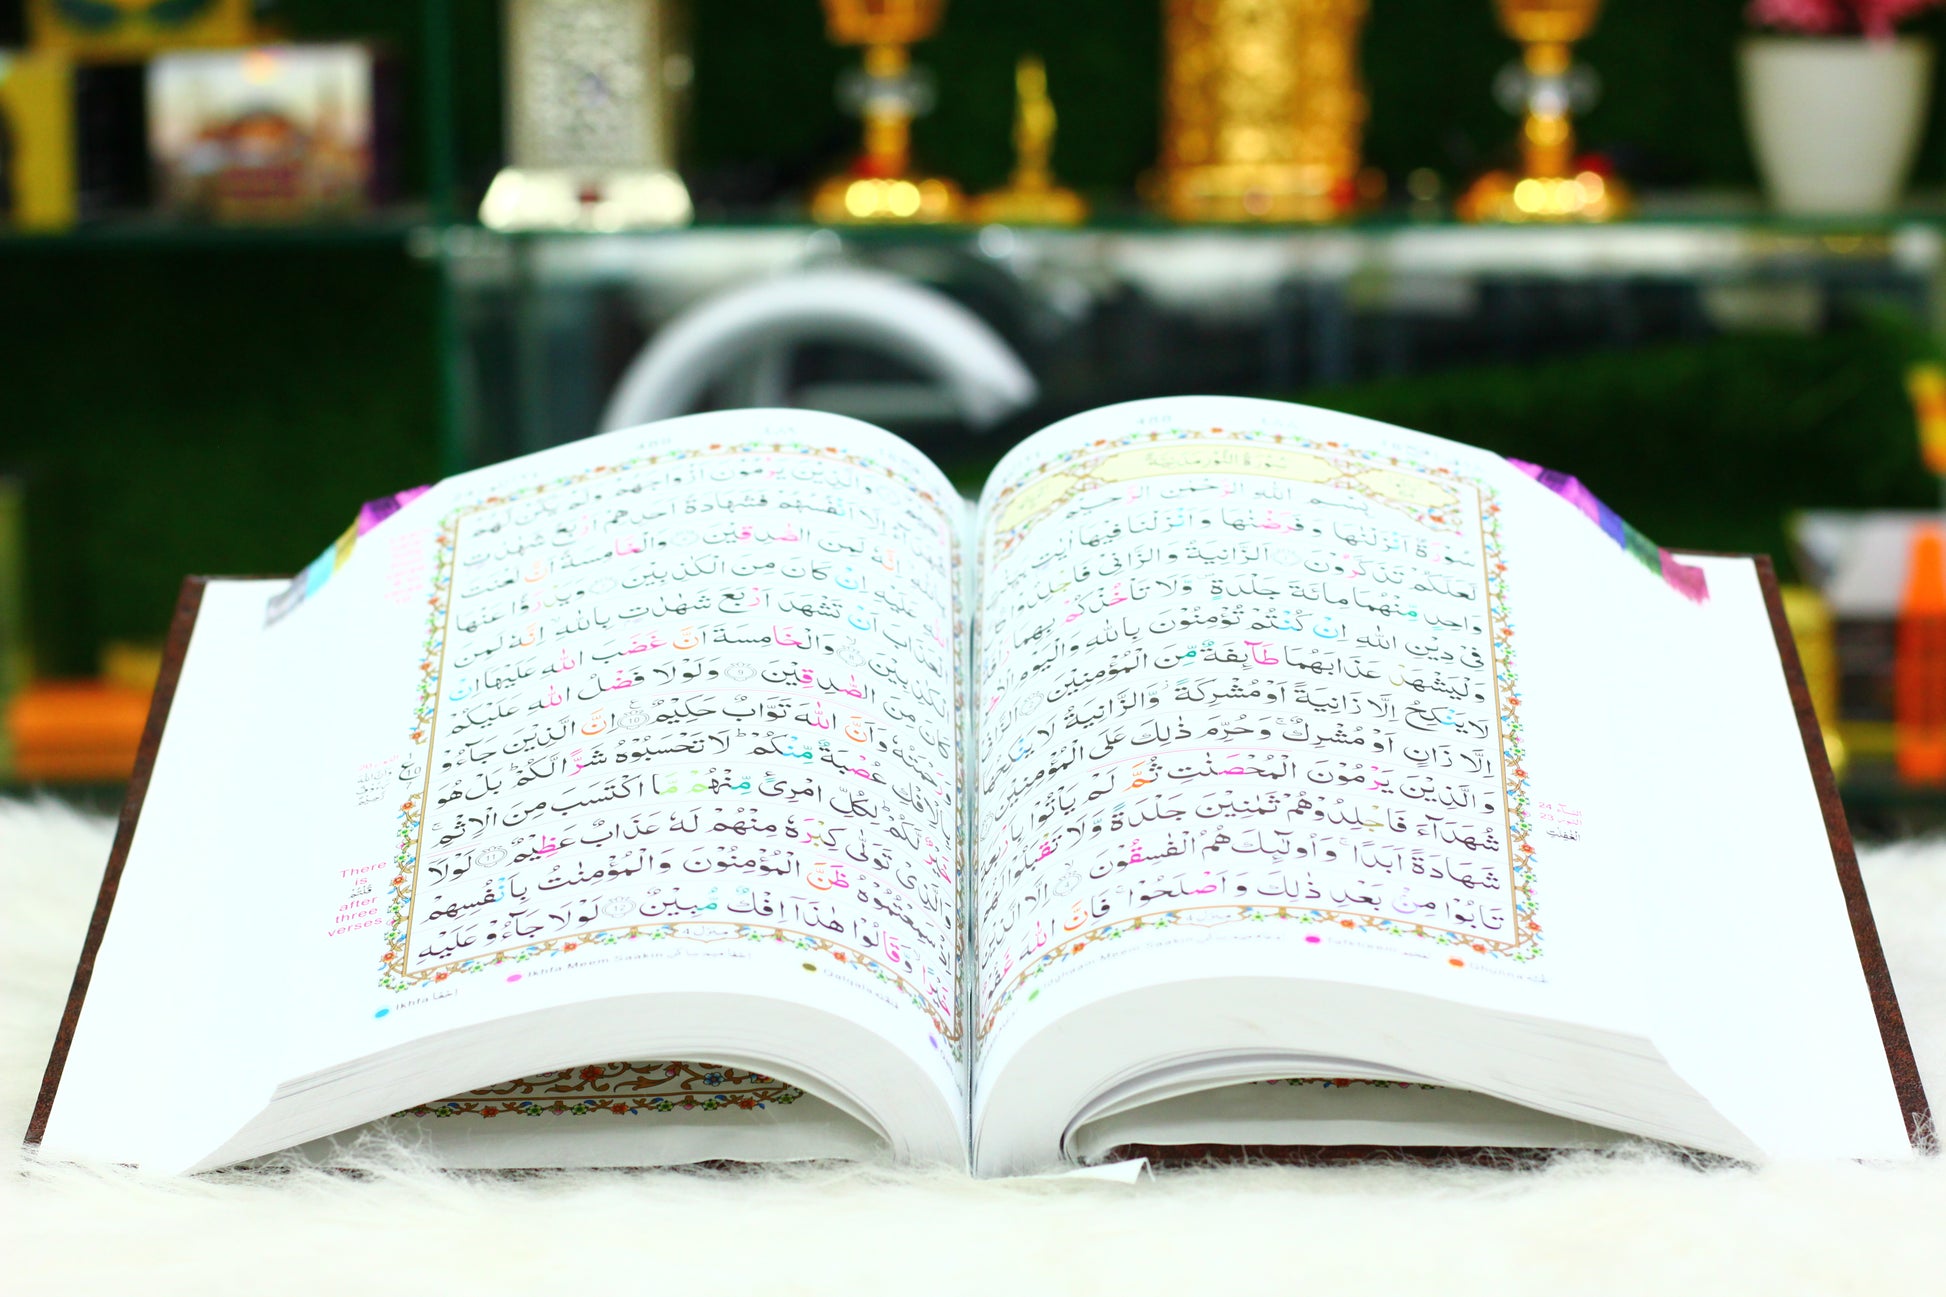 488
سُوْرَةُ النُّوْرِ مَدَنِيَّةٌ
بِسْمِ اللّٰهِ الرَّحْمٰنِ الرَّحِيْمِ
سُوْرَةٌ اَنْزَلْنٰهَا وَفَرَضْنٰهَا وَاَنْزَلْنَا فِيْهَاۤ اٰيٰتٍ
لَّعَلَّكُمْ تَذَكَّرُوْنَ اَلزَّانِيَةُ وَالزَّانِيْ فَاجْلِدُوْا
وَاحِدٍ مِّنْهُمَا مِائَةَ جَلْدَةٍ وَّلَا تَاْخُذْكُمْ بِهِمَا
فِيْ دِيْنِ اللّٰهِ اِنْ كُنْتُمْ تُؤْمِنُوْنَ بِاللّٰهِ وَالْيَوْمِ الْاٰخِرِ
وَلْيَشْهَدْ عَذَابَهُمَا طَآئِفَةٌ مِّنَ الْمُؤْمِنِيْنَ اَلزَّانِيْ
لَا يَنْكِحُ اِلَّا زَانِيَةً اَوْ مُشْرِكَةً وَّالزَّانِيَةُ لَا يَنْكِحُهَاۤ
اِلَّا زَانٍ اَوْ مُشْرِكٌ وَحُرِّمَ ذٰلِكَ عَلَى الْمُؤْمِنِيْنَ
وَالَّذِيْنَ يَرْمُوْنَ الْمُحْصَنٰتِ ثُمَّ لَمْ يَاْتُوْا بِاَرْبَعَةِ
شُهَدَآءَ فَاجْلِدُوْهُمْ ثَمٰنِيْنَ جَلْدَةً وَّلَا تَقْبَلُوْا لَهُمْ
شَهَادَةً اَبَدًا وَاُولٰٓئِكَ هُمُ الْفٰسِقُوْنَ اِلَّا الَّذِيْنَ
تَابُوْا مِنْ بَعْدِ ذٰلِكَ وَاَصْلَحُوْا فَاِنَّ اللّٰهَ غَفُوْرٌ
منزل 4
Ghunna غنّه
وَالَّذِيْنَ يَرْمُوْنَ اَزْوَاجَهُمْ وَلَمْ يَكُنْ لَّهُمْ
اِلَّاۤ اَنْفُسُهُمْ فَشَهَادَةُ اَحَدِهِمْ اَرْبَعُ شَهٰدٰتٍ
اِنَّهٗ لَمِنَ الصّٰدِقِيْنَ وَالْخَامِسَةُ اَنَّ لَعْنَتَ
عَلَيْهِ اِنْ كَانَ مِنَ الْكٰذِبِيْنَ وَيَدْرَؤُا عَنْهَا
الْعَذَابَ اَنْ تَشْهَدَ اَرْبَعَ شَهٰدٰتٍ بِاللّٰهِ اِنَّهٗ لَمِنَ
الْكٰذِبِيْنَ وَالْخَامِسَةَ اَنَّ غَضَبَ اللّٰهِ عَلَيْهَاۤ اِنْ
كَانَ مِنَ الصّٰدِقِيْنَ ٩ وَلَوْلَا فَضْلُ اللّٰهِ عَلَيْكُمْ
وَرَحْمَتُهٗ وَاَنَّ اللّٰهَ تَوَّابٌ حَكِيْمٌ 10 اِنَّ الَّذِيْنَ جَآءُوْ
بِالْاِفْكِ عُصْبَةٌ مِّنْكُمْ لَا تَحْسَبُوْهُ شَرًّا لَّكُمْ بَلْ هُوَ
خَيْرٌ لَّكُمْ لِكُلِّ امْرِئٍ مِّنْهُمْ مَّا اكْتَسَبَ مِنَ الْاِثْمِ
وَالَّذِيْ تَوَلّٰى كِبْرَهٗ مِنْهُمْ لَهٗ عَذَابٌ عَظِيْمٌ ١١ لَوْلَاۤ
سَمِعْتُمُوْهُ ظَنَّ الْمُؤْمِنُوْنَ وَالْمُؤْمِنٰتُ بِاَنْفُسِهِمْ
خَيْرًا وَّقَالُوْا هٰذَاۤ اِفْكٌ مُّبِيْنٌ لَوْلَا جَآءُوْ عَلَيْهِ
منزل 4
There
is
قُلْتُمْ
after
three
verses.
Ikhfa اخفا
Ikhfa Meem Saakin
Qalqala قلقله